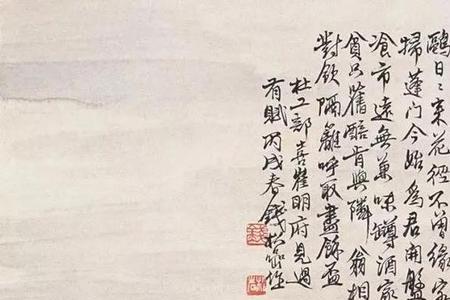 鷗日〻來花徑不曾緣客
掃蓬門今始為君開盤
飡市遠無兼味罇酒家
貧只舊醅肯與隣翁相
對飲隔籬呼取盡餘盃
杜工部喜崔明府見過
有賦丙戌春錢松嵒作